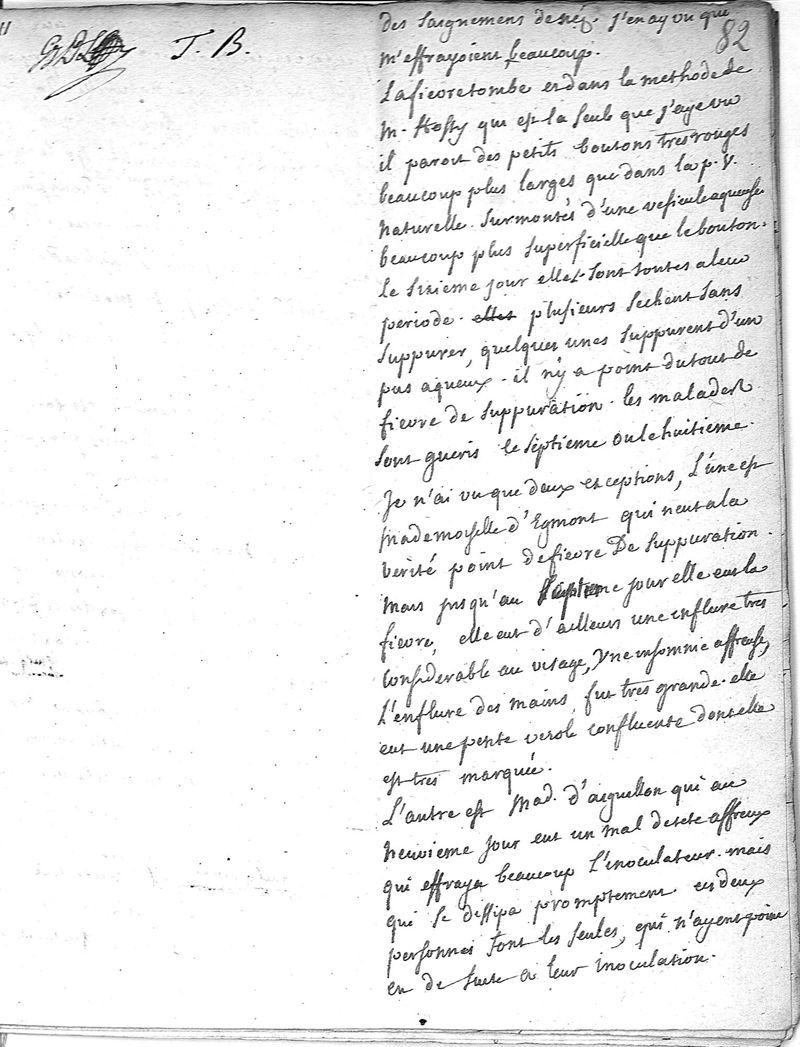 T. B.
82
des saignemens de néz. j'en ay vu qui
m'effrayoient beaucoup.
La fievre tombe et dans la methode de
M. Hosty qui est la seule que j'aye vu
il paroit des petits boutons tres rouges
beaucoup plus larges que dans la p. v.
naturelle. surmontés d'une vesicule aqueuse
beaucoup plus superficielle que le bouton.
Le sixieme jour elles sont toutes a leur
periode. elles plusieurs sechent sans
suppurer, quelques unes suppurent d'un
pus aqueux. il n'y a point du tout de
fievre de suppuration. les malades
sont gueris le septieme ou le huitieme.
Je n'ai vu que deux exceptions, L'une est
Mademoiselle d'Egmont qui n'eut a la
verité point de fievre De suppuration.
mais jusqu'au septieme jour elle eut la
fievre, elle eut d'ailleurs une enflure tres
considerable au visage, une insomnie affreuse,
L'enflure des mains fut tres grande. elle
eut une petite verole confluente dont elle
est tres marquée.
L'autre est Mad. d'aiguillon qui au
neuvieme jour eut un mal de tete affreux
qui effraya beaucoup L'inoculateur. mais
qui se dissipa promptement ces deux
personnes sont les seules, qui n'ayent point
eu de suite a leur inoculation.